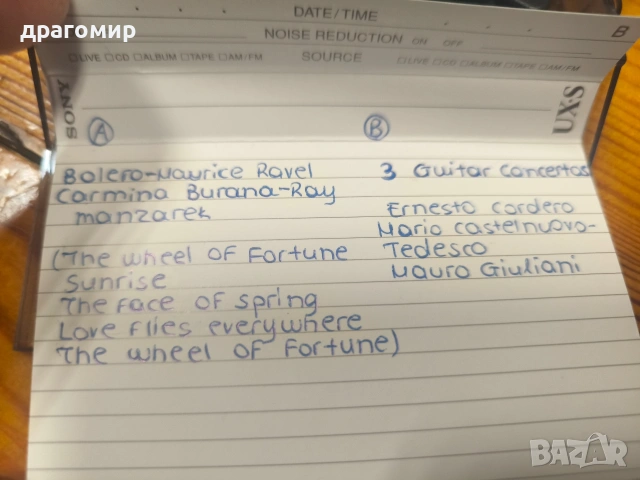 драгомир
B
DATE/TIME
NOISE REDUCTION ON OFF
□LIVE □CD □ALBUM □TAPE □AM/FM SOURCE □LIVE □CD □ALBUM □TAPE □AM/FM
SONY
UX·S
A
B
Bolero-Maurice Ravel
Carmina Burana-Ray
manzarek
(The wheel of Fortune
Sunrise
The face of spring
Love flies everywhere
The wheel of fortune)
3 Guitar Concertos
Ernesto cordero
Mario castelnuovo-
Tedesco
Mauro Giuliani
BAZAR
bg